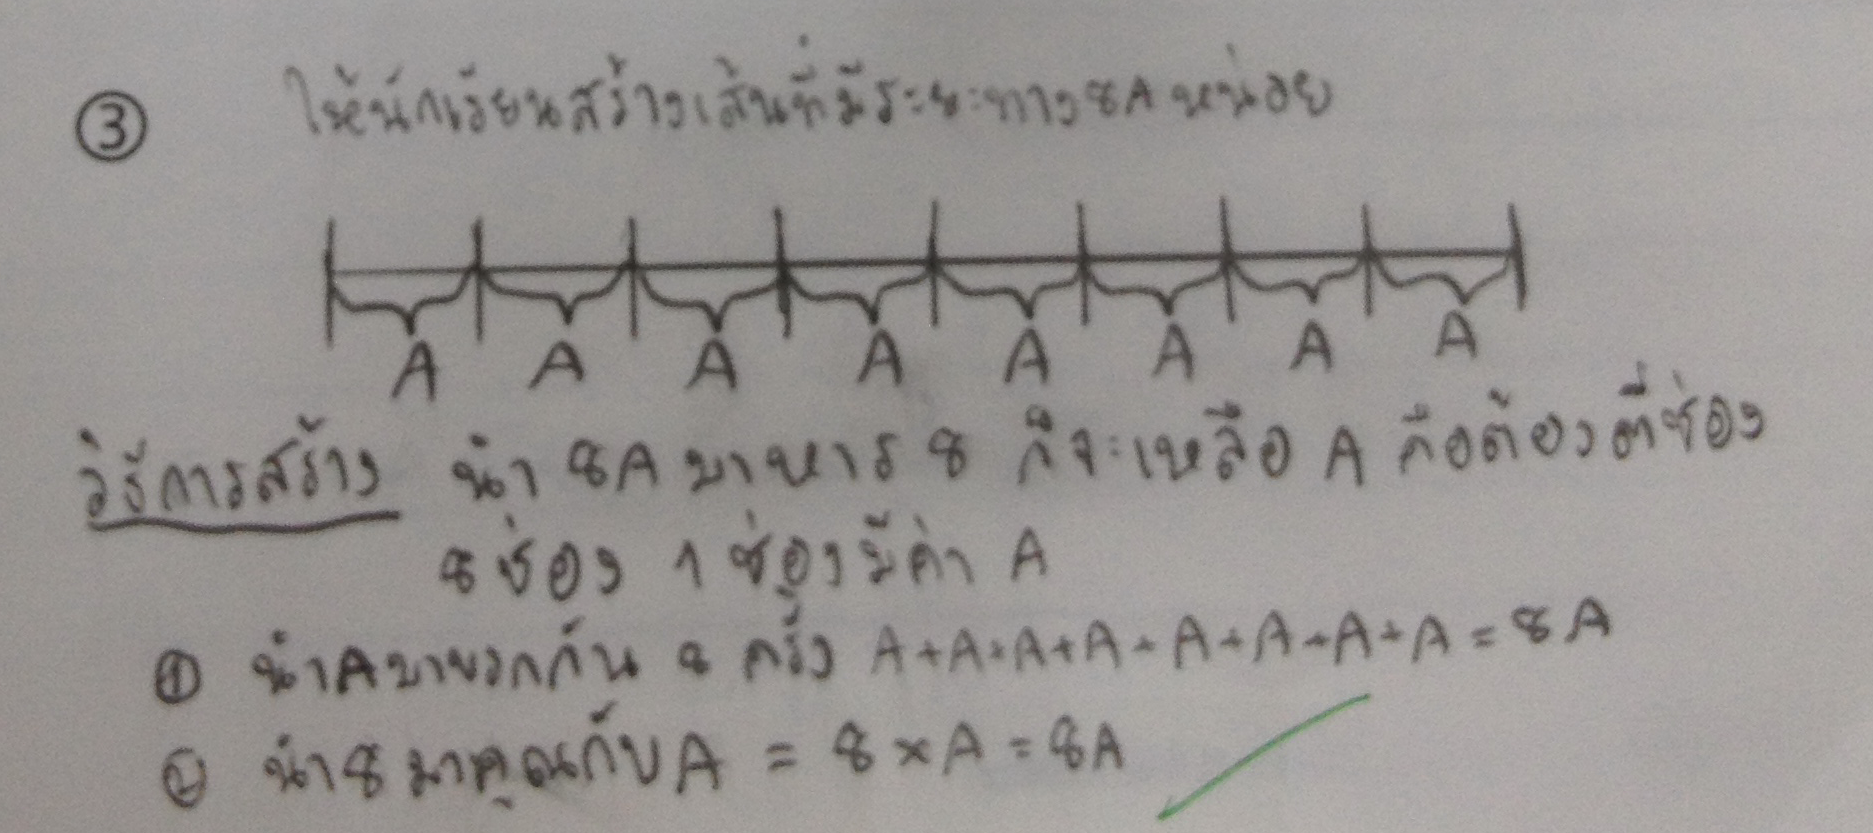 ③ ให้นักเรียนสร้างเส้นที่มีระยะทาง 8A หน่วย
A A A A A A A A
วิธีการสร้าง นำ 8A มาหาร 8 ก็จะเหลือ A คือต้องตีช่อง
8 ช่อง 1 ช่องมีค่า A
① นำ A มาบวกกัน 8 ครั้ง A+A+A+A+A+A+A+A = 8A
② นำ 8 มาคูณกับ A = 8 × A = 8A